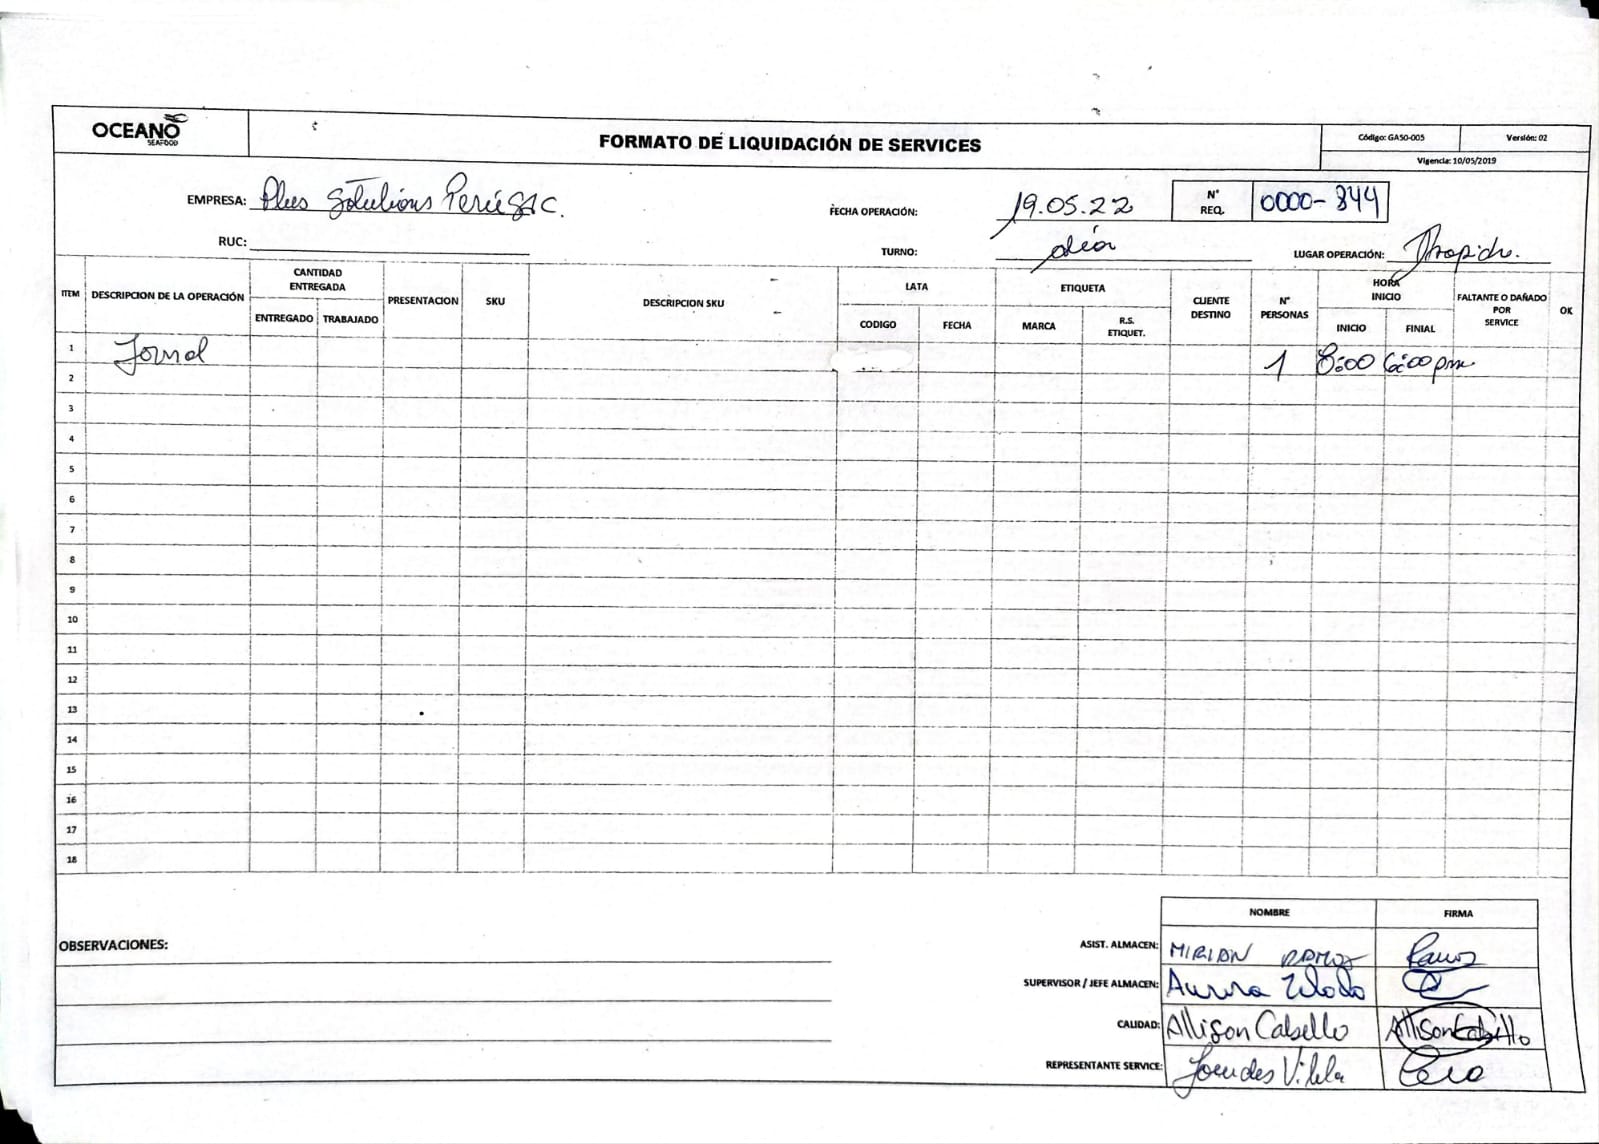 OCEANO
SEAFOOD
FORMATO DE LIQUIDACIÓN DE SERVICES
Código: GASO-005
Versión: 02
Vigencia: 10/05/2019
EMPRESA: Plus Solutions Perú SAC.
FECHA OPERACIÓN: 19.05.22
N° REQ. 0000-844
RUC:
TURNO: día
LUGAR OPERACIÓN:
ITEM DESCRIPCION DE LA OPERACIÓN CANTIDAD ENTREGADA PRESENTACION SKU DESCRIPCION SKU LATA ETIQUETA CLIENTE DESTINO N° PERSONAS HORA INICIO FALTANTE O DAÑADO POR SERVICE OK
ENTREGADO TRABAJADO CODIGO FECHA MARCA R.S. ETIQUET. INICIO FINIAL
1 Jornal 1 8:00 6:00 pm
2
3
4
5
6
7
8
9
10
11
12
13
14
15
16
17
18
NOMBRE FIRMA
OBSERVACIONES:
ASIST. ALMACEN: MIRIAN RAMOS Ramos
SUPERVISOR / JEFE ALMACEN: Aurora
CALIDAD: Allison Cabello Allison Cabello
REPRESENTANTE SERVICE: Lourdes Vilela